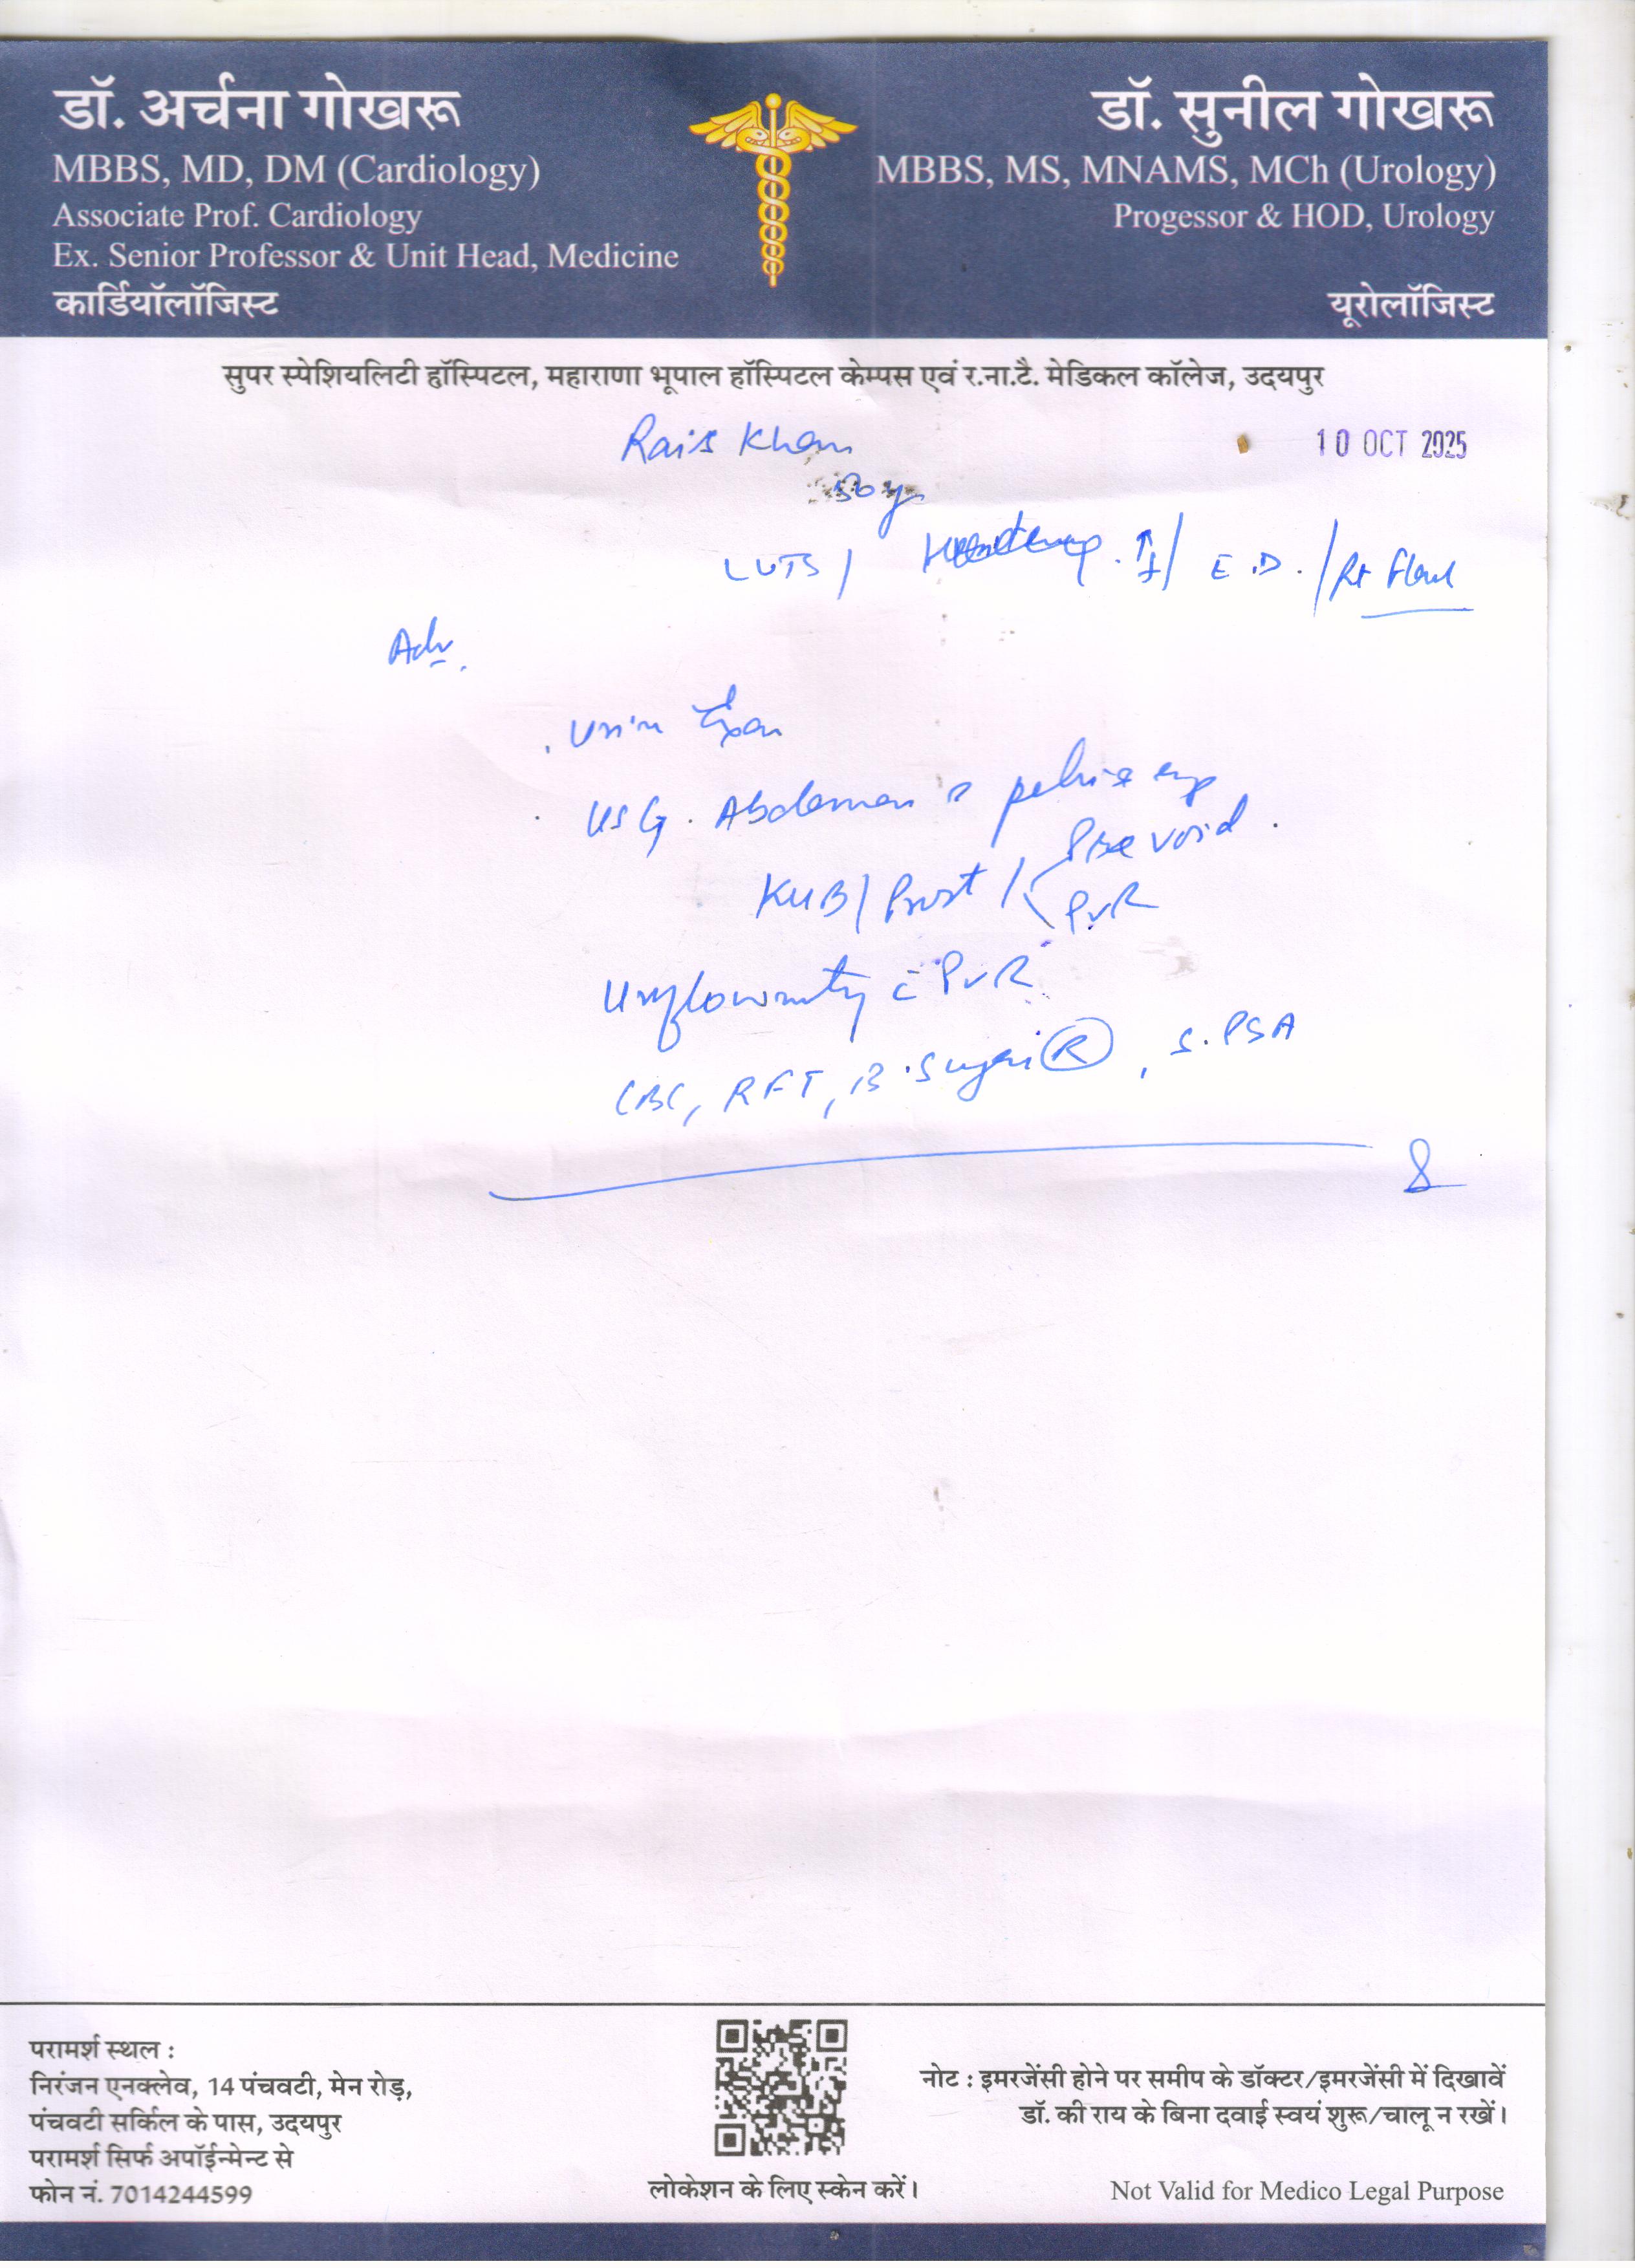 डॉ. अर्चना गोखरू
MBBS, MD, DM (Cardiology)
Associate Prof. Cardiology
Ex. Senior Professor & Unit Head, Medicine
कार्डियॉलॉजिस्ट
डॉ. सुनील गोखरू
MBBS, MS, MNAMS, MCh (Urology)
Progessor & HOD, Urology
यूरोलॉजिस्ट
सुपर स्पेशियलिटी हॉस्पिटल, महाराणा भूपाल हॉस्पिटल केम्पस एवं र.ना.टै. मेडिकल कॉलेज, उदयपुर
Rais Khan
10 OCT 2025
LUTS / E.D. / Rt Flank
Adv.
Urine Exam
USG. Abdomen pelvis
Pre void.
KUB / Prost / PVR
Uroflowmetry c̄ PVR
CBC, RFT, B.Sugar (R), S.PSA
परामर्श स्थल :
निरंजन एनक्लेव, 14 पंचवटी, मेन रोड़,
पंचवटी सर्किल के पास, उदयपुर
परामर्श सिर्फ अपॉईन्मेन्ट से
फोन नं. 7014244599
लोकेशन के लिए स्केन करें।
नोट : इमरजेंसी होने पर समीप के डॉक्टर/इमरजेंसी में दिखावें
डॉ. की राय के बिना दवाई स्वयं शुरू/चालू न रखें।
Not Valid for Medico Legal Purpose